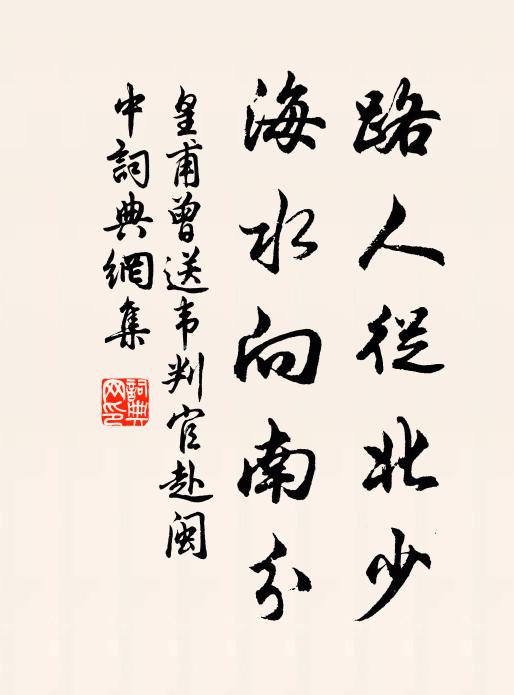 路人從北少
海水向南分
皇甫曾送韦判官赴闽
中詞典網集
詞典
网印